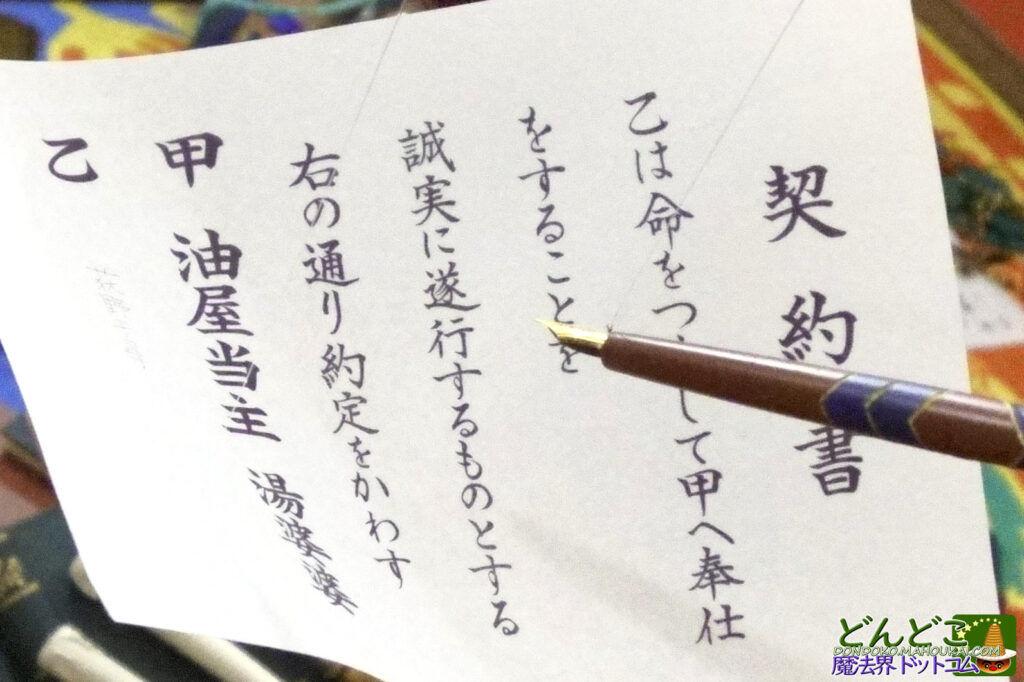 契約書
乙は命をつ して甲へ奉仕
をすることを
誠実に遂行するものとする
右の通り約定をかわす
甲 油屋当主 湯婆婆
乙
どんどこ
DONDOKO.MAHOUKAI.COM
魔法界ドットコム